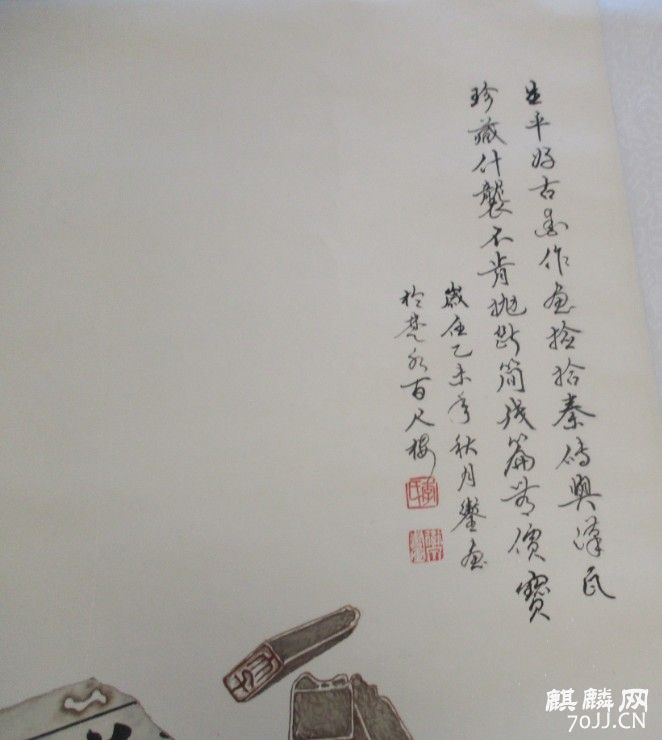 生平好古勤作画捡拾秦砖與漢瓦
珍藏什襲不肯抛断簡残篇無價寶
歲在乙未年秋月鑿画
於楚水百尺樓
麒麟网
70JJ.CN